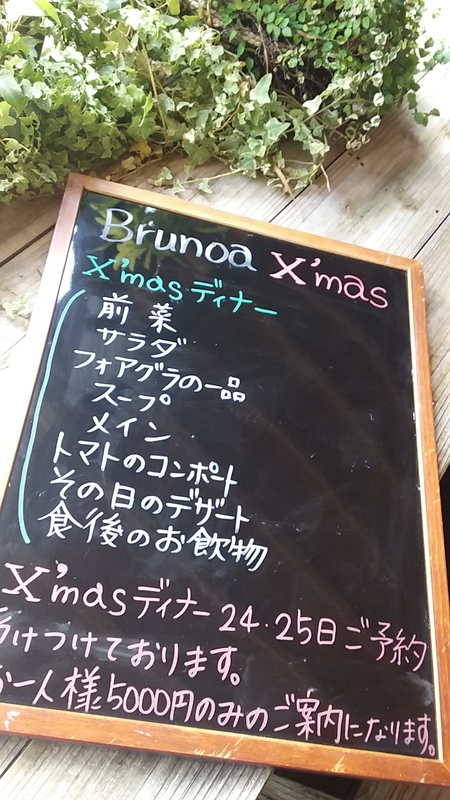 Brunoa X'mas
X'masディナー
前菜
サラダ
フォアグラの一品
スープ
メイン
トマトのコンポート
その日のデザート
食後のお飲物
X'masディナー24・25日ご予約
うけつけております。
お一人様5000円のみのご案内になります。